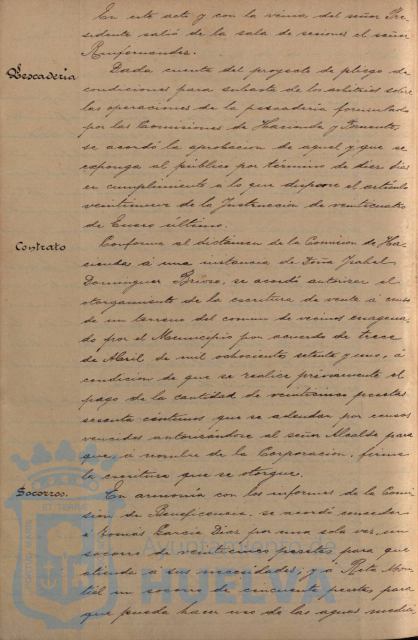 En este acto y con la venia del señor Pre-
sidente salió de la sala de sesiones el señor
Pescadería
Dada cuenta del proyecto de pliego de
condiciones para subasta de los arbitrios sobre
las operaciones de la pescadería formulado
por las Comisiones de Hacienda y Fomento,
se acordó la aprobacion de aquel y que se
exponga al público por término de diez dias
en cumplimiento a lo que dispone el artículo
veintinueve de la Instruccion de veinticuatro
de Enero último.
Contrato
Conforme al dictamen de la Comision de Ha-
cienda á una instancia de Doña Isabel
Dominguez, se acordó autorizar el
otorgamiento de la escritura de venta á censo
de un terreno del comun de vecinos enagena-
do por el Municipio por acuerdo de trece
de Abril de mil ochocientos setenta y uno, á
condicion de que se realice préviamente el
pago de la cantidad de veinticinco pesetas
sesenta céntimos que se adeudan por censos
vencidos autorizándose al señor Alcalde para
que, á nombre de la Corporacion, firme
la escritura que se otorgue.
Socorros.
En armonía con los informes de la Comi-
sion de Beneficencia, se acordó conceder
á Tomás García Diaz por una sola vez, un
socorro de veinticinco pesetas para que
atienda á sus necesidades, y á Rita Mon-
tiel un socorro de cincuenta pesetas para
que pueda hacer uso de las aguas medici
Ayuntamiento de
HUELVA